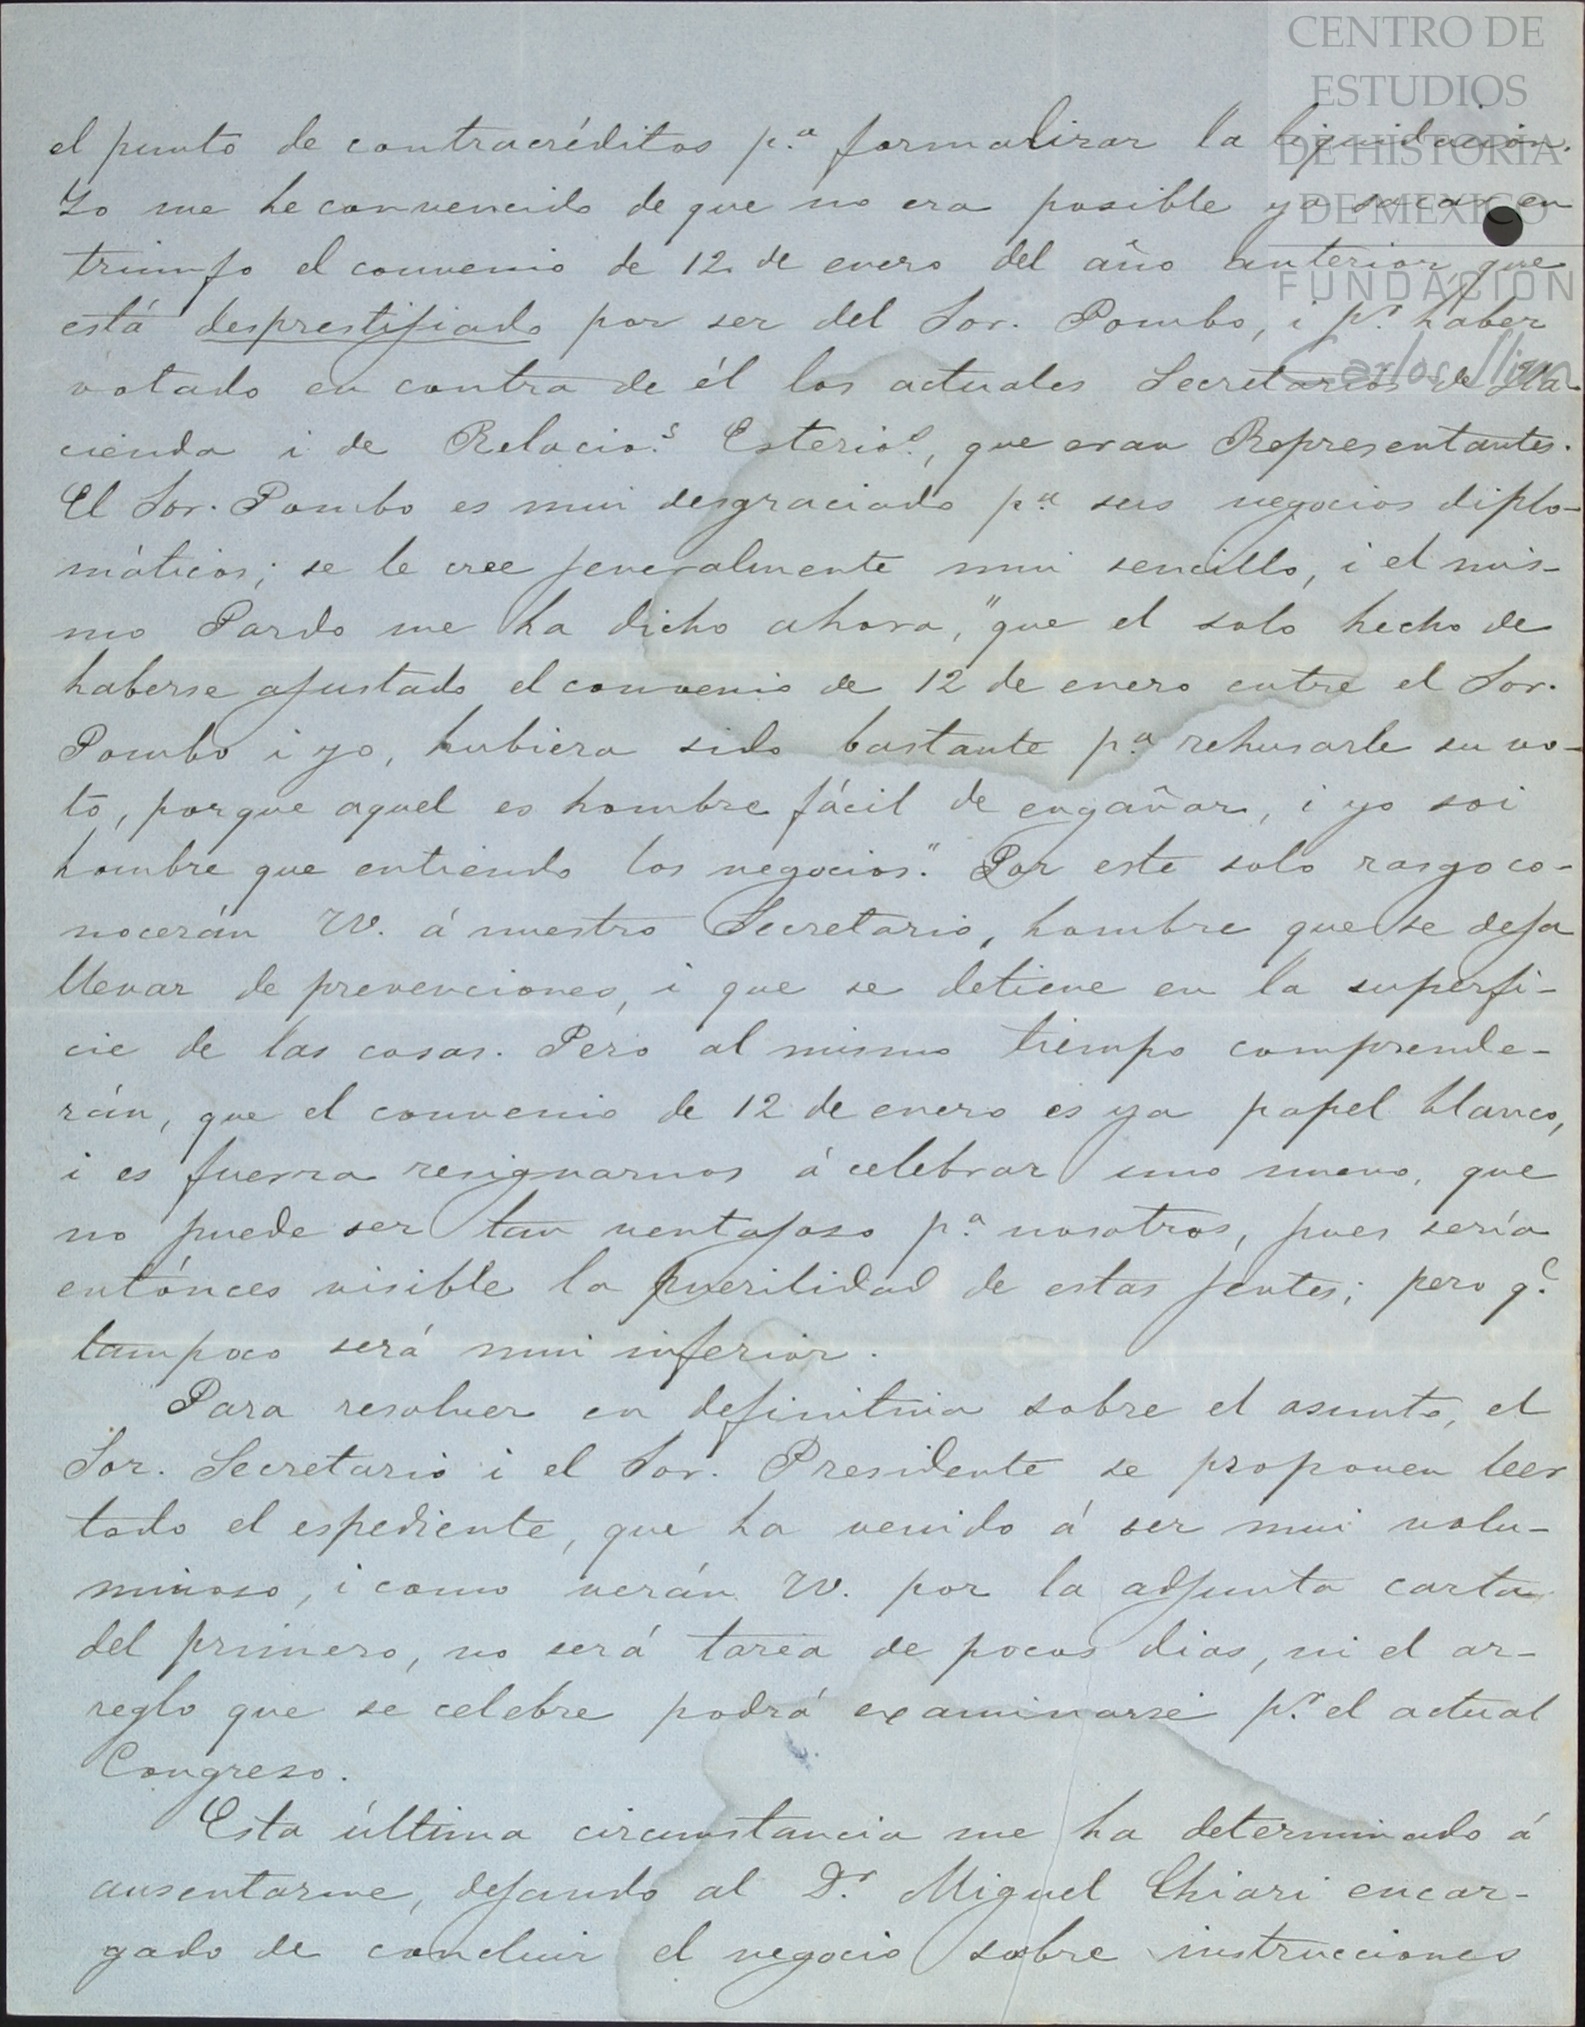 CENTRO DE
ESTUDIOS
DE HISTORIA
DE MEXICO
FUNDACION
Carlos Slim
el punto de contracréditos p.ª formalizar la liquidación.
Yo me he convencido de que no era posible ya sacar en
triunfo el convenio de 12 de enero del año anterior que
está desprestijiado por ser del Sor. Pombo, i p.r haber
votado en contra de él los actuales Secretarios de Ha-
cienda i de Relacio.s Esterio.s, que eran Representantes.
El Sor. Pombo es mui desgraciado p.ª sus negocios diplo-
máticos; se le cree jeneralmente mui sencillo, i el mis-
mo Pardo me ha dicho ahora, "que el solo hecho de
haberse ajustado el convenio de 12 de enero entre el Sor.
Pombo i yo, hubiera sido bastante p.ª rehusarle su vo-
to, porque aquel es hombre fácil de engañar, i yo soi
hombre que entiendo los negocios". Por este solo rasgo co-
nocerán VV. á nuestro Secretario, hombre que se deja
llevar de prevenciones, i que se detiene en la superfi-
cie de las cosas. Pero al mismo tiempo comprende-
rán, que el convenio de 12 de enero es ya papel blanco,
i es fuerza resignarnos á celebrar uno nuevo, que
no puede ser tan ventajoso p.ª nosotros, pues sería
entónces visible la puerilidad de estas jentes; pero q.e
tampoco será mui inferior.
Para resolver en definitiva sobre el asunto, el
Sor. Secretario i el Sor. Presidente se proponen leer
todo el espediente, que ha venido á ser mui volu-
minoso, i como verán VV. por la adjunta carta
del primero, no será tarea de pocos dias, ni el ar-
reglo que se celebre podrá examinarse p.r el actual
Congreso.
Esta última circunstancia me ha determinado á
ausentarme, dejando al D.r Miguel Chiari encar-
gado de concluir el negocio sobre instrucciones